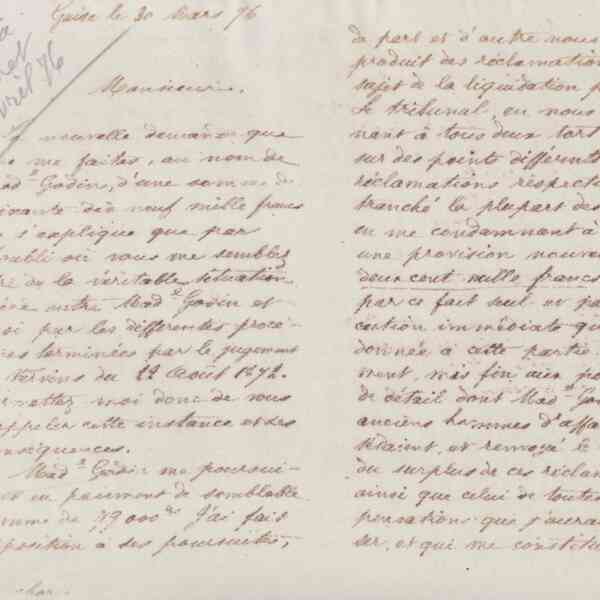 Guise le 30 Mars 76
à
vril 76
Monsieur.
nouvelle demande que
me faites, au nom de
ad^e Godin, d'une somme de
ixante dix neuf mille francs
s'explique que par
oubli où vous me semblez
re de la véritable situation
entre Mad^e Godin et
oi par les différentes procé-
res terminées par le jugement
Vervins du 22 Août 1872.
mettez moi donc de vous
appeler cette instance et ses
nséquences.
Mad^e Godin me poursui-
t en paiement de semblable
omme de 79 000^frs J'ai fait
pposition à ses poursuites,
de part et d'autre nous
produit des réclamation
sujet de la liquidation
le tribunal, en nous
nant à tous deux tort
sur des points différents
réclamations respecti
tranché la plupart des
en me condamnant à
une provision nouve
deux cent mille francs
par ce fait seul et pa
cution immédiate que
donnée à cette partie
ment, mis fin aux po
de détail dont Mad^e Go
anciens hommes d'affa
daient, et renvoyé le
du surplus de ces récla
ainsi que celui de toutes
pensations que j'aura
ser, et qui me constitu